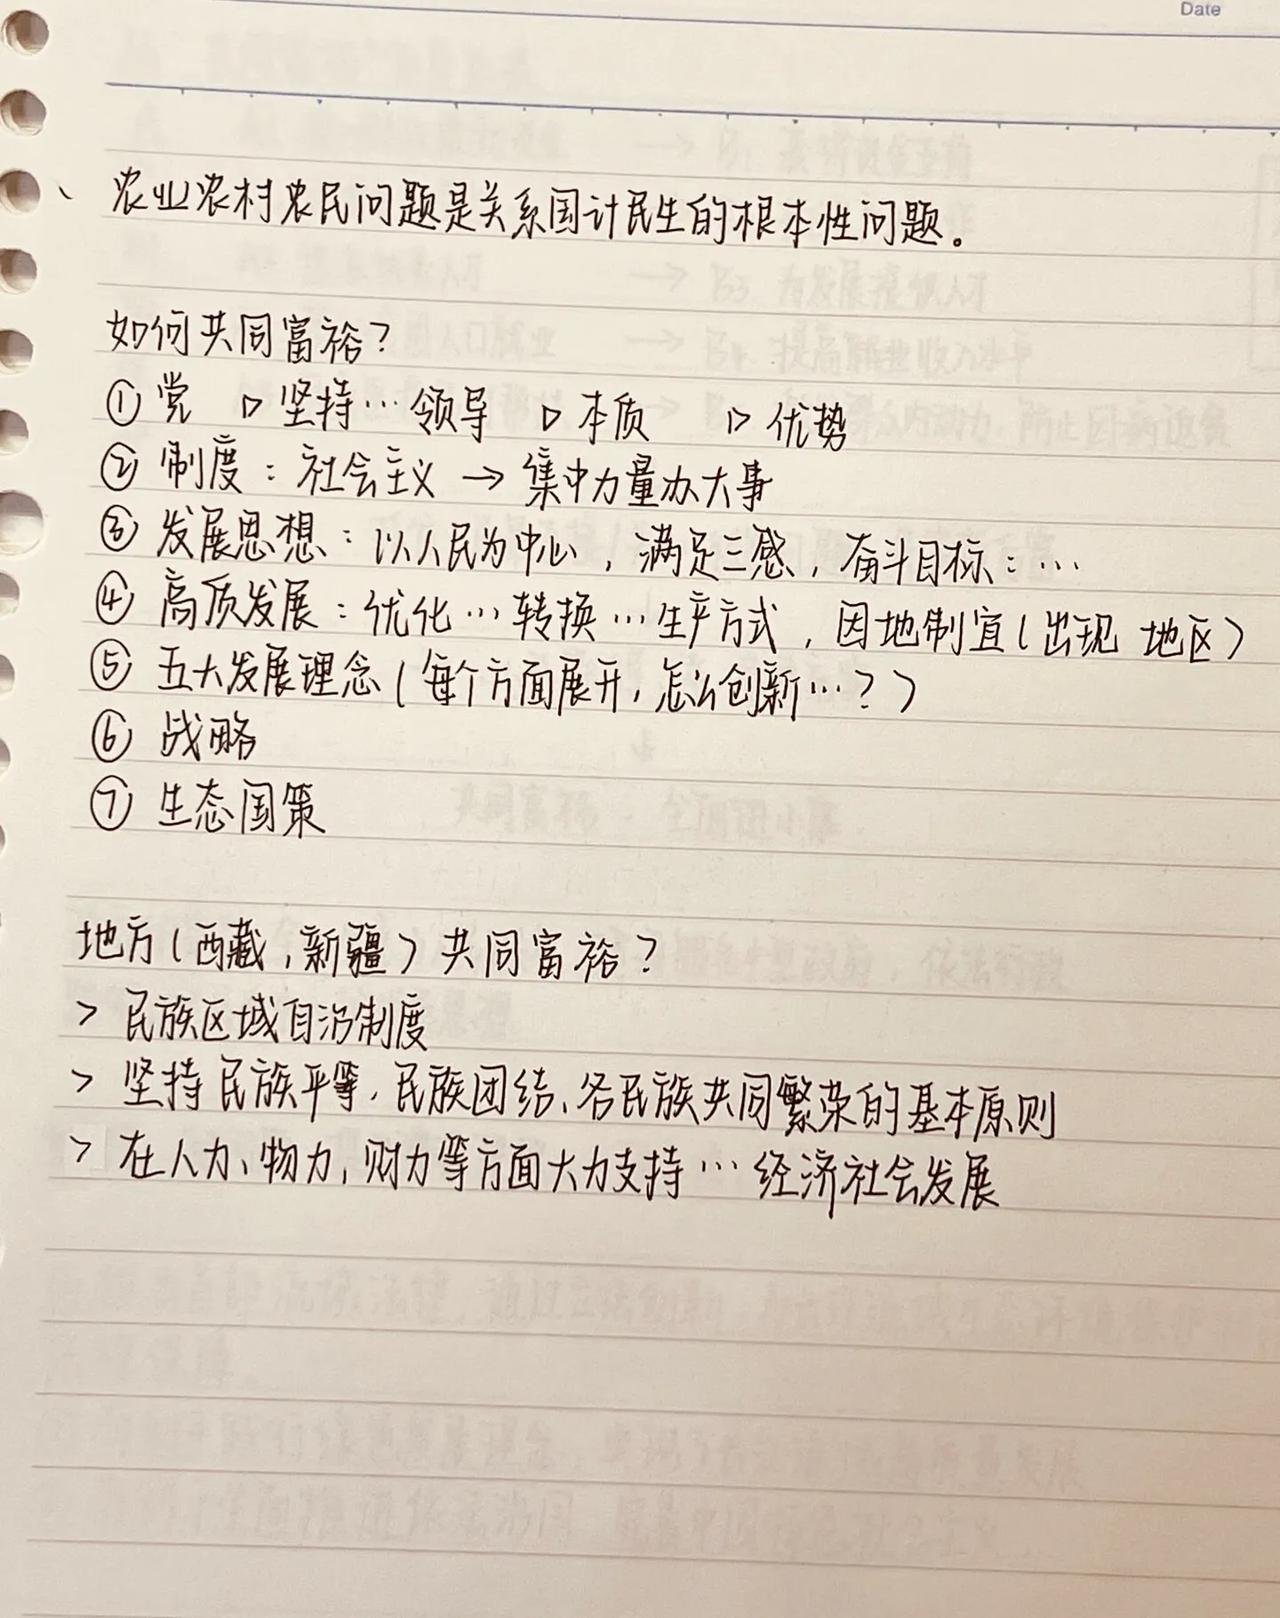 Date
农业农村农民问题是关系国计民生的根本性问题。
如何共同富裕？
① 党 ▷ 坚持…领导 ▷ 本质 ▷ 优势
② 制度：社会主义 → 集中力量办大事
③ 发展思想：以人民为中心，满足三感，奋斗目标：…
④ 高质发展：优化…转换…生产方式，因地制宜（出现 地区）
⑤ 五大发展理念（每个方面展开，怎么创新…？）
⑥ 战略
⑦ 生态国策
地方（西藏，新疆）共同富裕？
> 民族区域自治制度
> 坚持民族平等、民族团结、各民族共同繁荣的基本原则
> 在人力、物力、财力等方面大力支持…经济社会发展